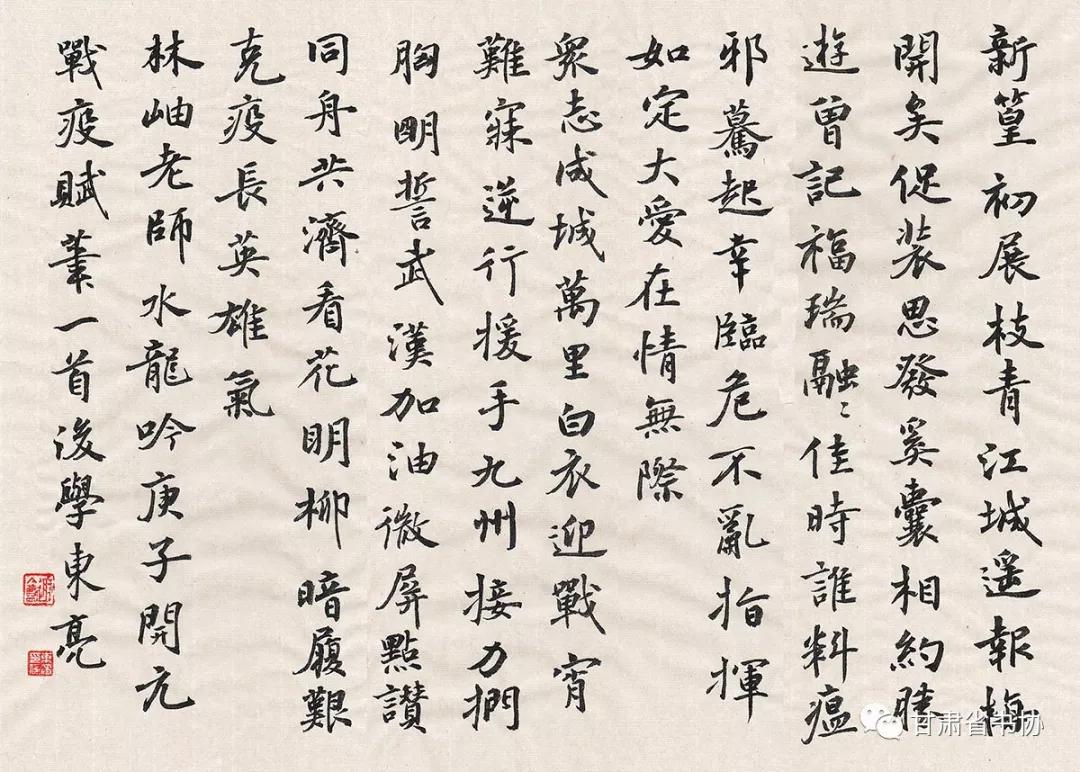 新篁初展枝青江城遥報梅
開矣促装思發奚囊相約勝
遊曾記福瑞融〻佳時誰料瘟
邪驀起幸臨危不亂指揮
如定大愛在情無際
衆志成城萬里白衣迎戰宵
難寐逆行援手九州接力捫
胸明誓武漢加油微屏點讃
同舟共濟看花明柳暗履艱
克疫長英雄氣
林岫老師水龍吟庚子開元
戰疫賦一首後學東亮
甘肃省书协